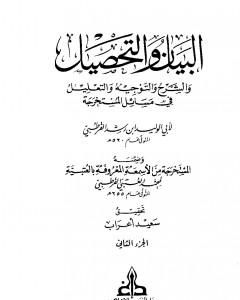 البيان والتحصيل
والشرح والتوجيه والتعليل
في مسائل المستخرجة
لأبي الوليد ابن رشد القرطبي
المتوفى عام ٥٢٠ هـ
وضمنه
المستخرجة من الأسمعة المعروفة بالعتبية
لمحمد العتبي القرطبي
المتوفى عام ٢٥٥ هـ
تحقيق
سعيد أعراب
الجزء الثاني